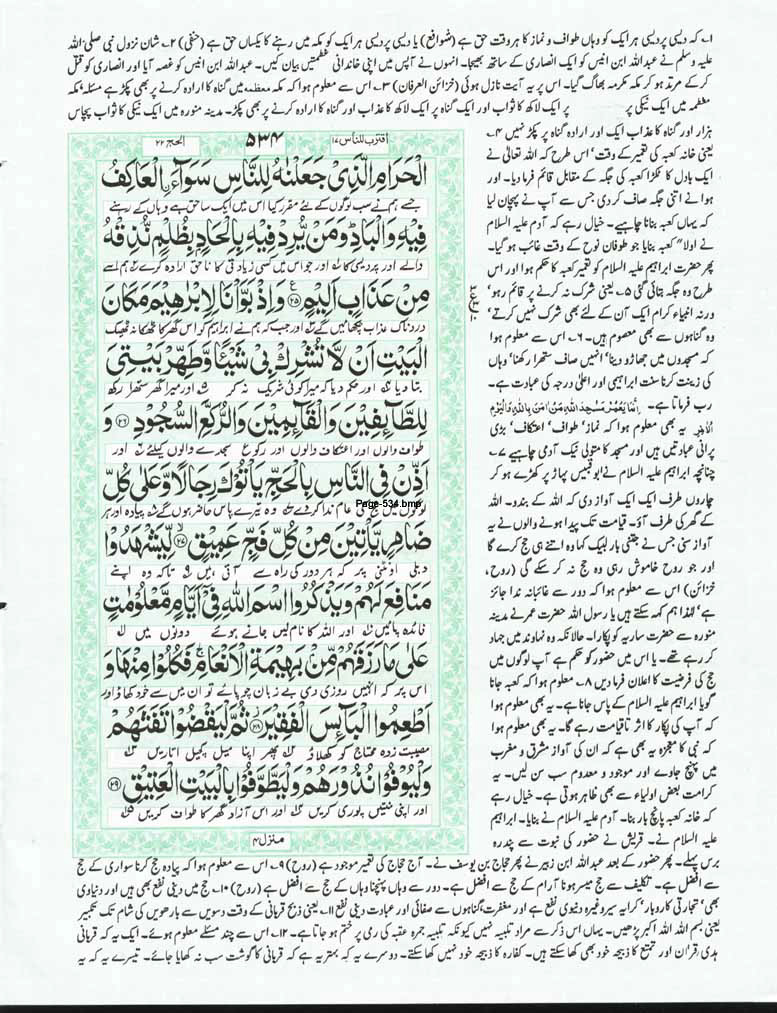 ۱؎ کہ دیسی پردیسی ہر ایک کو وہاں طواف و نماز کا ہر وقت حق ہے (شوافع) یا دیسی پردیسی ہر ایک کو مکہ میں رہنے کا یکساں حق ہے (حنفی) ۲؎ شان نزول نبی صلی اللہ
علیہ وسلم نے عبداللہ ابن انیس کو ایک انصاری کے ساتھ بھیجا۔ انہوں نے آپس میں اپنی خاندانی عظمتیں بیان کیں۔ عبداللہ ابن انیس کو غصہ آیا اور انصاری کو قتل
کر کے مرتد ہو کر مکہ مکرمہ بھاگ گیا۔ اس پر یہ آیت نازل ہوئی (خزائن العرفان) ۳؎ اس سے معلوم ہوا کہ مکہ معظمہ میں گناہ کا ارادہ کرنے پر بھی پکڑ ہے مسئلہ: مکہ
معظمہ میں ایک نیکی پر پر ایک لاکھ کا ثواب اور ایک گناہ پر ایک لاکھ کا عذاب اور گناہ کا ارادہ کرنے پر بھی پکڑ۔ مدینہ منورہ میں ایک نیکی کا ثواب پچاس
ہزار اور گناہ کا عذاب ایک اور ارادہ گناہ پر پکڑ نہیں ۴؎
یعنی خانہ کعبہ کی تعمیر کے وقت، اس طرح کہ اللہ تعالیٰ نے
ایک بادل کا ٹکڑا کعبہ کی جگہ کے مقابل قائم فرما دیا۔ اور
ہوا نے اتنی جگہ صاف کر دی جس سے آپ نے پہچان لیا
کہ یہاں کعبہ بنانا چاہیے۔ خیال رہے کہ آدم علیہ السلام
نے اولاً کعبہ بنایا جو طوفان نوح کے وقت غائب ہو گیا۔
پھر حضرت ابراہیم علیہ السلام کو تعمیر کعبہ کا حکم ہوا اور اس
طرح وہ جگہ بتائی گئی ۵؎ یعنی شرک نہ کرنے پر قائم رہو،
ورنہ انبیاء کرام ایک آن کے لئے بھی شرک نہیں کرتے،
وہ گناہوں سے بھی معصوم ہیں۔ ۶؎ اس سے معلوم ہوا
کہ مسجدوں میں جھاڑو دینا، انہیں صاف ستھرا رکھنا، وہاں
کی زینت کرنا سنت ابراہیمی اور اعلیٰ درجہ کی عبادت ہے۔
رب فرماتا ہے۔ اِنَّمَا يَعْمُرُ مَسٰجِدَ اللّٰهِ مَنْ اٰمَنَ بِاللّٰهِ وَالْيَوْمِ
الْاٰخِرِ یہ بھی معلوم ہوا کہ نماز، طواف، اعتکاف، بڑی
پرانی عبادتیں ہیں اور مسجد کا متولی نیک آدمی چاہیے ۷؎
چنانچہ ابراہیم علیہ السلام نے ابوقبیس پہاڑ پر کھڑے ہو کر
چاروں طرف ایک ایک آواز دی کہ اللہ کے بندو۔ اللہ
کے گھر کی طرف آؤ۔ قیامت تک پیدا ہونے والوں نے یہ
آواز سنی جس نے جتنی بار لبیک کہا وہ اتنے ہی حج کرے گا
اور جو روح خاموش رہی وہ حج نہ کر سکے گی (روح،
خزائن) اس سے معلوم ہوا کہ دور سے غائبانہ ندا جائز
ہے، لہٰذا ہم کہہ سکتے ہیں یا رسول اللہ حضرت عمر نے مدینہ
منورہ سے حضرت ساریہ کو پکارا۔ حالانکہ وہ نہاوند میں جہاد
کر رہے تھے۔ یا اس میں حضور کو حکم ہے آپ لوگوں میں
حج کی فرضیت کا اعلان فرما دیں ۸؎ معلوم ہوا کہ کعبہ جانا
گویا ابراہیم علیہ السلام کے پاس جانا ہے۔ یہ بھی معلوم ہوا
کہ آپ کی پکار کا اثر تاقیامت رہے گا۔ یہ بھی معلوم ہوا
کہ نبی کا معجزہ یہ بھی ہے کہ ان کی آواز مشرق و مغرب
میں پہنچ جاوے اور موجود و معدوم سب سن لیں۔ یہ
کرامت بعض اولیاء سے بھی ظاہر ہوتی ہے۔ خیال رہے
کہ خانہ کعبہ پانچ بار بنا۔ آدم علیہ السلام نے بنایا۔ ابراہیم
علیہ السلام نے۔ قریش نے حضور کی نبوت سے پندرہ
اقترب للناس ۱۷ ۵۳۴ الحج ۲۲
الْحَرَامِ الَّذِیْ جَعَلْنٰهُ لِلنَّاسِ سَوَآءَ ۨالْعَاكِفُ
جسے ہم نے سب لوگوں کے لئے مقرر کیا اس میں ایک سا حق ہے وہاں کے رہنے
فِیْهِ وَالْبَادِ ؕ وَمَنْ یُّرِدْ فِیْهِ بِاِلْحَادٍۭ بِظُلْمٍ نُّذِقْهُ
والے اور پردیسی کا ۱؎ اور جو اس میں کسی زیادتی کا ناحق ارادہ کرے ۲؎ ہم اسے
مِنْ عَذَابٍ اَلِیْمٍ ﴿۲۵﴾ وَاِذْ بَوَّاْنَا لِاِبْرٰهِیْمَ مَكَانَ
دردناک عذاب چکھائیں گے ۳؎ اور جب کہ ہم نے ابراہیم کو اس گھر کا ٹھکانا ٹھیک
الْبَیْتِ اَنْ لَّا تُشْرِكْ بِیْ شَیْـًٔا وَّطَهِّرْ بَیْتِیَ
بتا دیا ۴؎ اور حکم دیا کہ میرا کوئی شریک نہ کر ۵؎ اور میرا گھر ستھرا رکھ
لِلطَّآئِفِیْنَ وَالْقَآئِمِیْنَ وَالرُّكَّعِ السُّجُوْدِ ﴿۲۶﴾ وَ
طواف والوں اور اعتکاف والوں اور رکوع سجدے والوں کیلئے ۶؎ اور
اَذِّنْ فِی النَّاسِ بِالْحَجِّ یَاْتُوْكَ رِجَالًا وَّعَلٰی كُلِّ
لوگوں میں حج کی عام ندا کر دے ۷؎ وہ تیرے پاس حاضر ہوں گے ۸؎ پیادہ اور ہر
Page-534.bmp
ضَامِرٍ یَّاْتِیْنَ مِنْ كُلِّ فَجٍّ عَمِیْقٍ ﴿۲۷﴾ لِّیَشْهَدُوْا
دبلی اونٹنی پر کہ ہر دور کی راہ سے آتی ہیں ۹؎ تاکہ وہ اپنے
مَنَافِعَ لَهُمْ وَیَذْكُرُوا اسْمَ اللّٰهِ فِیْۤ اَیَّامٍ مَّعْلُوْمٰتٍ
فائدہ پائیں ۱۰؎ اور اللہ کا نام لیں جانے ہوئے دنوں میں ۱۱؎
عَلٰی مَا رَزَقَهُمْ مِّنْۢ بَهِیْمَةِ الْاَنْعَامِ ۚ فَكُلُوْا مِنْهَا وَ
اس پر کہ انہیں روزی دی بے زبان چوپائے تو ان میں سے خود کھاؤ اور
اَطْعِمُوا الْبَآئِسَ الْفَقِیْرَ ﴿۲۸﴾ ثُمَّ لْیَقْضُوْا تَفَثَهُمْ
مصیبت زدہ محتاج کو کھلاؤ ۱۲؎ پھر اپنا میل کچیل اتاریں
وَلْیُوْفُوْا نُذُوْرَهُمْ وَلْیَطَّوَّفُوْا بِالْبَیْتِ الْعَتِیْقِ ﴿۲۹﴾
اور اپنی منتیں پوری کریں اور اس آزاد گھر کا طواف کریں
منزل ۴
برس پہلے۔ پھر حضور کے بعد عبداللہ ابن زبیر نے پھر حجاج بن یوسف نے۔ آج حجاج کی تعمیر موجود ہے (روح) ۹؎ اس سے معلوم ہوا کہ پیادہ حج کرنا سواری کے حج
سے افضل ہے۔ تکلیف سے حج میسر ہونا آرام کے حج سے افضل ہے۔ دور سے وہاں پہنچنا وہاں کے حج سے افضل ہے (روح) ۱۰؎ حج میں دینی نفع بھی ہیں اور دنیاوی
بھی، تجارتی کاروبار، کرایہ سیر وغیرہ دنیوی نفع ہے اور مغفرت گناہوں سے صفائی اور عبادت دینی نفع ۱۱؎ یعنی ذبح قربانی کے وقت دسویں سے بارھویں کی شام تک تکبیر
یعنی بسم اللہ اللہ اکبر پڑھیں۔ یہاں اس ذکر سے مراد تلبیہ نہیں کیونکہ تلبیہ جمرہ عقبہ کی رمی پر ختم ہو جاتا ہے۔ ۱۲؎ اس سے چند مسئلے معلوم ہوئے۔ ایک یہ کہ قربانی
ہدی قران اور تمتع کا ذبیحہ خود بھی کھا سکتے ہیں۔ کفارہ کا ذبیحہ خود نہیں کھا سکتے۔ دوسرے یہ کہ بہتر یہ ہے کہ قربانی کا گوشت سب نہ کھایا جائے۔ تیسرے یہ کہ یہ